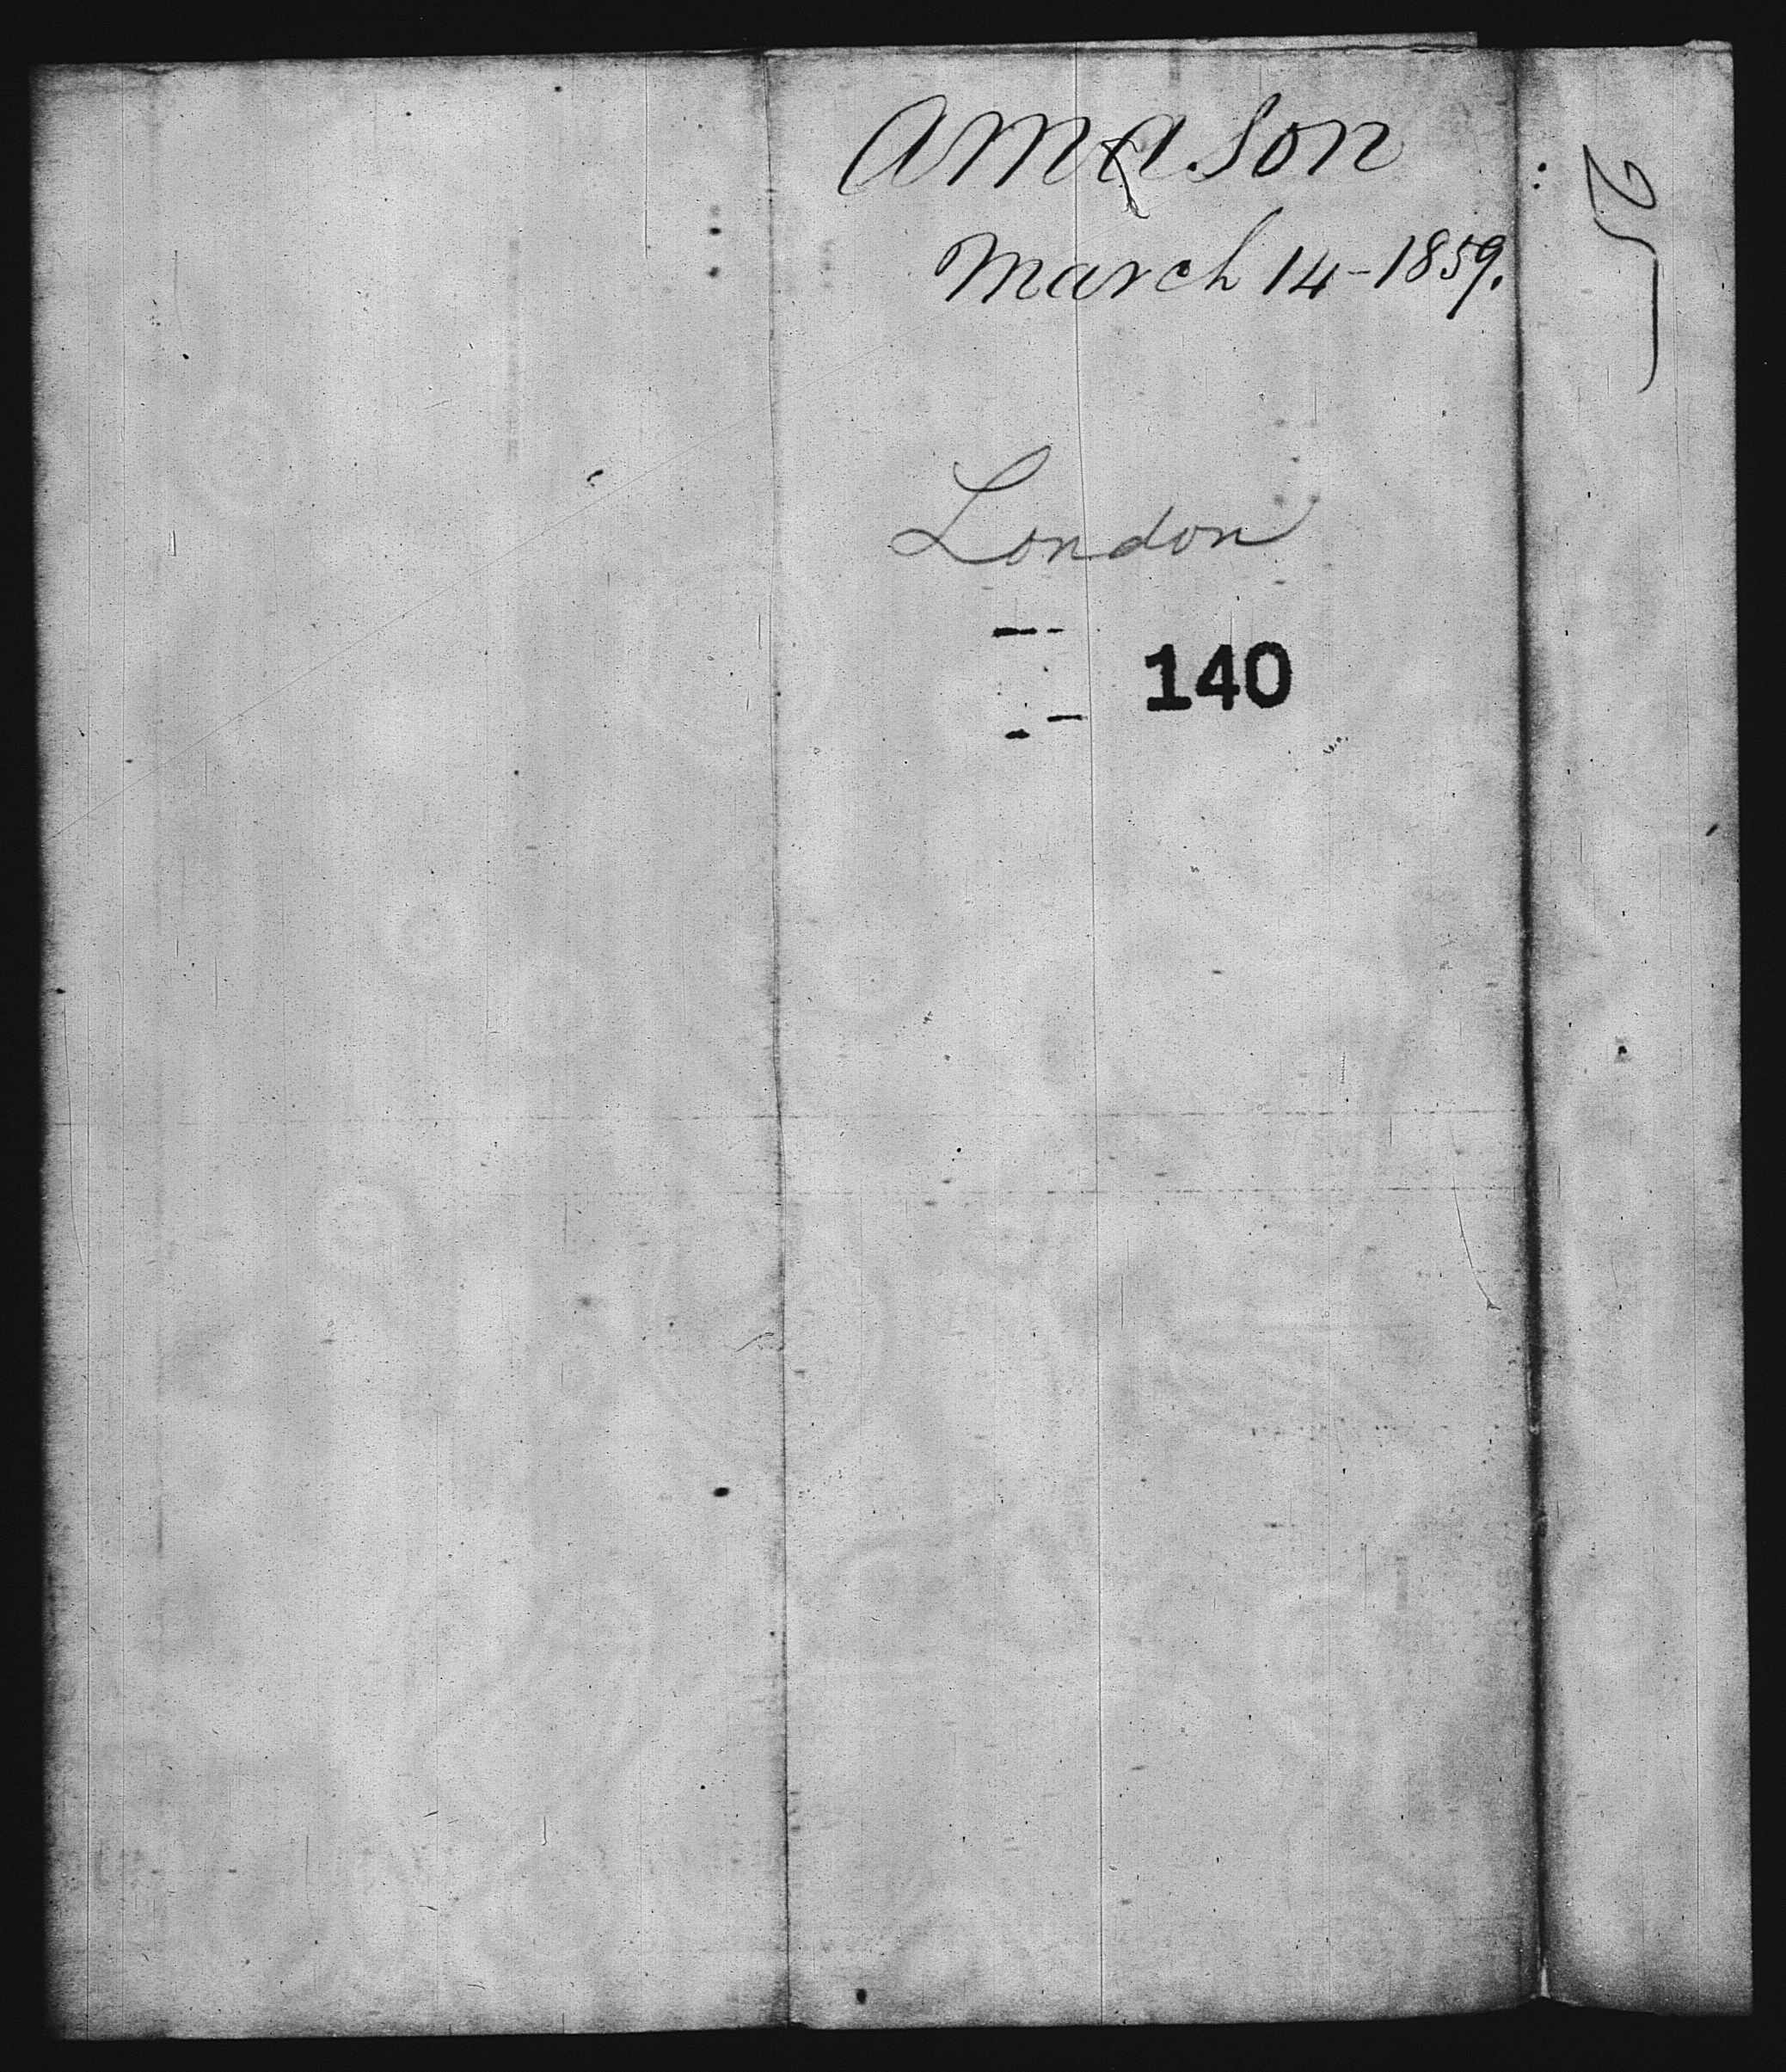 Amason
March 14-1859.
London
140